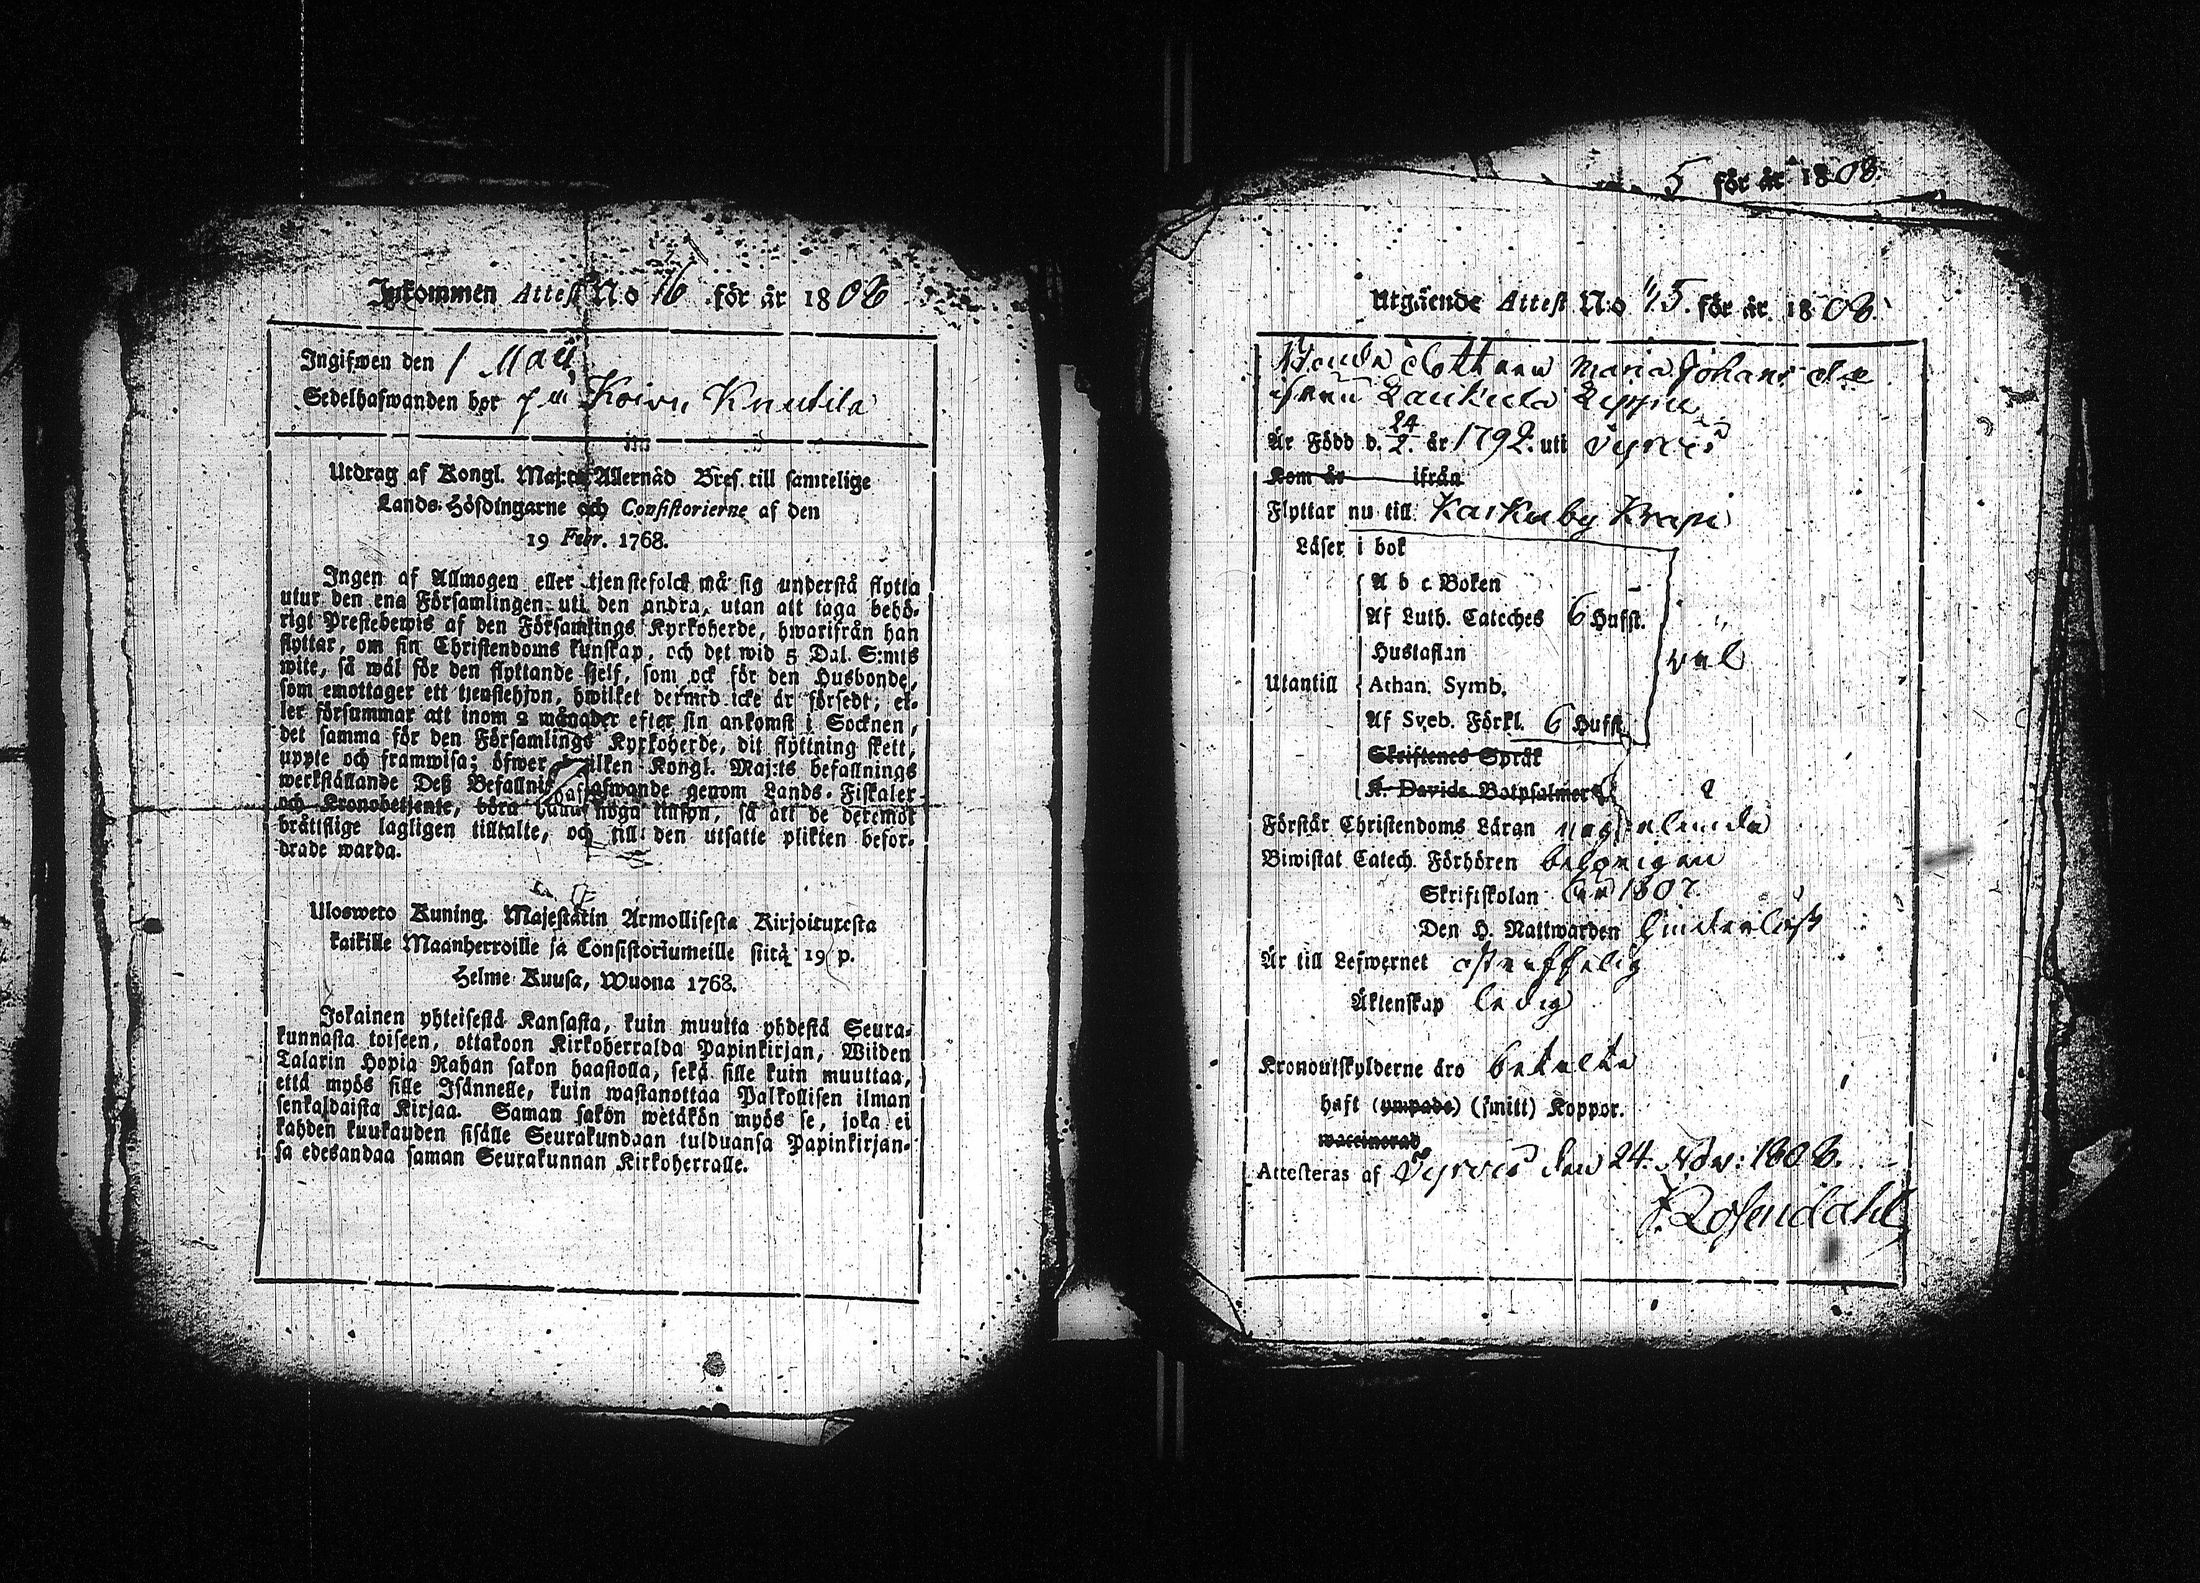 Inkommen Attest N:o 16 för år 1808
Ingifwen den 1 Maii
Sedelhafwanden bor på Koivu Knutila
Utdrag af Kongl. Maj:ts Allernåd Bref till samtelige
Lands-Höfdingarne och Consistorierne af den
19 Febr. 1768.
Ingen af Allmogen eller tjenstefolck må sig understå flytta
utur den ena Församlingen uti den andra, utan att taga behö-
rigt Prestebewis af den Församlings Kyrkoherde, hwarifrån han
flyttar, om sin Christendoms kunskap, och det wid 5 Dal. S:mts
wite, så wäl för den flyttande sjelf, som ock för den Husbonde,
som emottager ett tjenstehjon, hwilket dermed icke är försedt; el-
ler försummar att inom 2 månader efter sin ankomst i Socknen,
det samma för den Församlings Kyrkoherde, dit flyttning skett,
uppte och framwisa; öfwer hwilken Kongl. Maj:ts befallnings
werkställande Deß Befallningshafwande genom Lands-Fiskaler
och Kronobetjente, böra hålla noga tillsyn, så att de deremot
bråttslige lagligen tilltalte, och till den utsatte plikten befor-
drade warda.
Ulosweto Kuning. Majestätin Armollisesta Kirjoituxesta
kaikille Maanherroille ja Consistoriumeille siitä 19 p.
Helme Kuusa, Wuona 1768.
Jokainen yhteisestä Kansasta, kuin muutta yhdestä Seura-
kunnasta toiseen, ottakoon Kirkoherralda Papinkirjan, Wiiden
Talarin Hopia Rahan sakon haastolla, sekä sille kuin muuttaa,
että myös sille Isännelle, kuin wastanottaa Palkollisen ilman
senkaldaista Kirjaa. Saman sakon wetäkön myös se, joka ei
kahden kuukauden sisälle Seurakundaan tulduansa Papinkirjan-
sa edesandaa saman Seurakunnan Kirkoherralle.
5 för år 1808.
Utgående Attest N:o 45. för år 1808.
Bonde dottren Maria Johans dr
ifrån
Är Född d. 24/2 år 1792. uti Tyrvis
Kom år ifrån
Flyttar nu till Karkuby Krapi
Läser i bok
A b c Boken
Af Luth. Cateches 6 Hufst.
Hustaflan
wäl
Utantill Athan. Symb.
Af Sveb. Förkl. 6 Hufst.
Skriftenes Språk
K. Davids Botpsalmer
Förstår Christendoms Läran
Biwistat Catech. Förhören
Skriftskolan 1807.
Den H. Nattwarden
Är till Lefwernet ostraffelig
Äktenskap ledig
Kronoutskylderne äro betalte
haft (ympade) (smitt) Koppor.
waccinerad
Attesteras af Tyrvis den 24. Nov: 1808.
Rosendahl